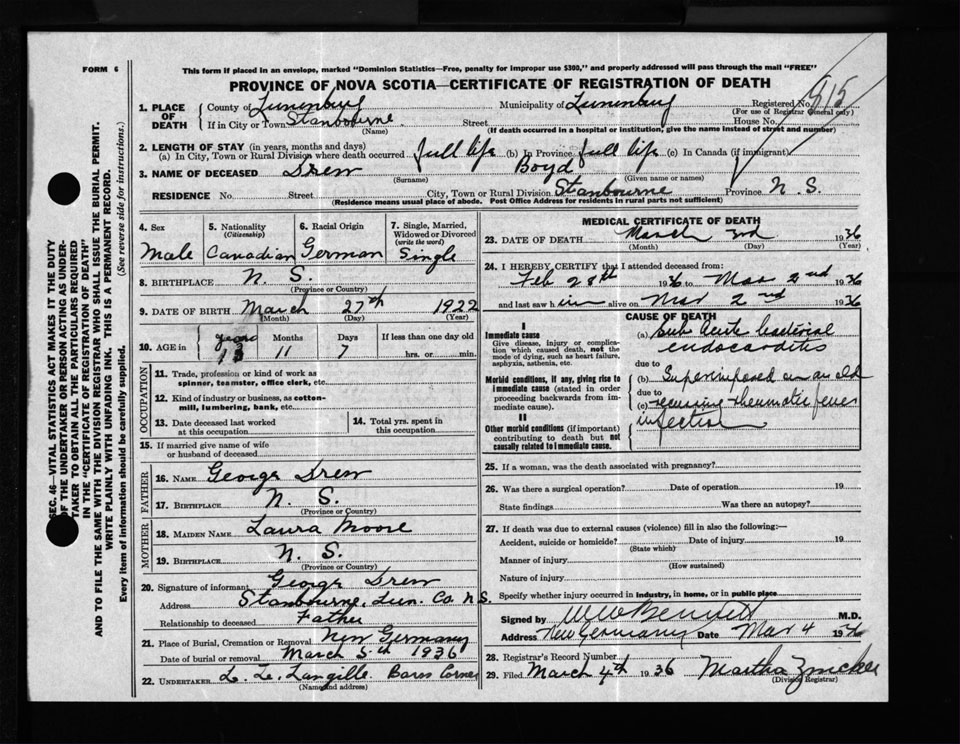 FORM 6
This form if placed in an envelope, marked "Dominion Statistics—Free, penalty for improper use $300," and properly addressed will pass through the mail "FREE"
PROVINCE OF NOVA SCOTIA—CERTIFICATE OF REGISTRATION OF DEATH
1. PLACE OF DEATH
County of Lunenburg Municipality of Lunenburg Registered No. 915
(For use of Registrar General only)
If in City or Town Stanbourne Street House No.
(Name) (If death occurred in a hospital or institution, give the name instead of street and number)
2. LENGTH OF STAY (in years, months and days)
(a) In City, Town or Rural Division where death occurred full life (b) In Province full life (c) In Canada (if immigrant)
3. NAME OF DECEASED Drew Boyd
(Surname) (Given name or names)
RESIDENCE No. Street City, Town or Rural Division Stanbourne Province N. S.
(Residence means usual place of abode. Post Office Address for residents in rural parts not sufficient)
4. Sex
Male
5. Nationality
(Citizenship)
Canadian
6. Racial Origin
German
7. Single, Married,
Widowed or Divorced
(write the word)
Single
8. BIRTHPLACE N. S.
(Province or Country)
9. DATE OF BIRTH March 27th 1922
(Month) (Day) (Year)
10. AGE in Years Months Days If less than one day old
13 11 7 hrs. or min.
OCCUPATION
11. Trade, profession or kind of work as
spinner, teamster, office clerk, etc.
12. Kind of industry or business, as cotton-
mill, lumbering, bank, etc.
13. Date deceased last worked
at this occupation
14. Total yrs. spent in
this occupation
15. If married give name of wife
or husband of deceased
FATHER
16. NAME George Drew
17. BIRTHPLACE N. S.
(Province or Country)
MOTHER
18. MAIDEN NAME Laura Moore
19. BIRTHPLACE N. S.
(Province or Country)
20. Signature of informant George Drew
Address Stanbourne, Lun. Co. N.S.
Relationship to deceased Father
21. Place of Burial, Cremation or Removal New Germany
Date of burial or removal March 5th 1936
22. UNDERTAKER L. L. Langille Barss Corner
(Name and address)
MEDICAL CERTIFICATE OF DEATH
23. DATE OF DEATH March 3rd 1936
(Month) (Day) (Year)
24. I HEREBY CERTIFY that I attended deceased from:
Feb 28th 1936 to Mar 2nd 1936
and last saw him alive on Mar 2nd 1936
CAUSE OF DEATH
I
Immediate cause
Give disease, injury or complica-
tion which caused death, not the
mode of dying, such as heart failure,
asphyxia, asthenia, etc.
(a) Sub Acute bacterial
endocarditis
due to
Morbid conditions, if any, giving rise to
immediate cause (stated in order
proceeding backwards from im-
mediate cause).
(b) Superimposed on an old
due to
(c) recurring rheumatic fever
infection
II
Other morbid conditions (if important)
contributing to death but not
causally related to immediate cause.
25. If a woman, was the death associated with pregnancy?
26. Was there a surgical operation? Date of operation 19
State findings Was there an autopsy?
27. If death was due to external causes (violence) fill in also the following:—
Accident, suicide or homicide? Date of injury 19
(State which)
Manner of injury
(How sustained)
Nature of injury
Specify whether injury occurred in industry, in home, or in public place
Signed by W W Bennett M.D.
Address New Germany Date Mar 4 1936
28. Registrar's Record Number
29. Filed March 4th 1936 Martha Zwicker
(Division Registrar)
SEC. 46—VITAL STATISTICS ACT MAKES IT THE DUTY
OF THE UNDERTAKER OR PERSON ACTING AS UNDER-
TAKER TO OBTAIN ALL THE PARTICULARS REQUIRED
IN THE "CERTIFICATE OF REGISTRATION OF DEATH"
AND TO FILE THE SAME WITH THE DIVISION REGISTRAR WHO SHALL ISSUE THE BURIAL PERMIT.
WRITE PLAINLY WITH UNFADING INK. THIS IS A PERMANENT RECORD.
Every item of information should be carefully supplied. (See reverse side for instructions.)